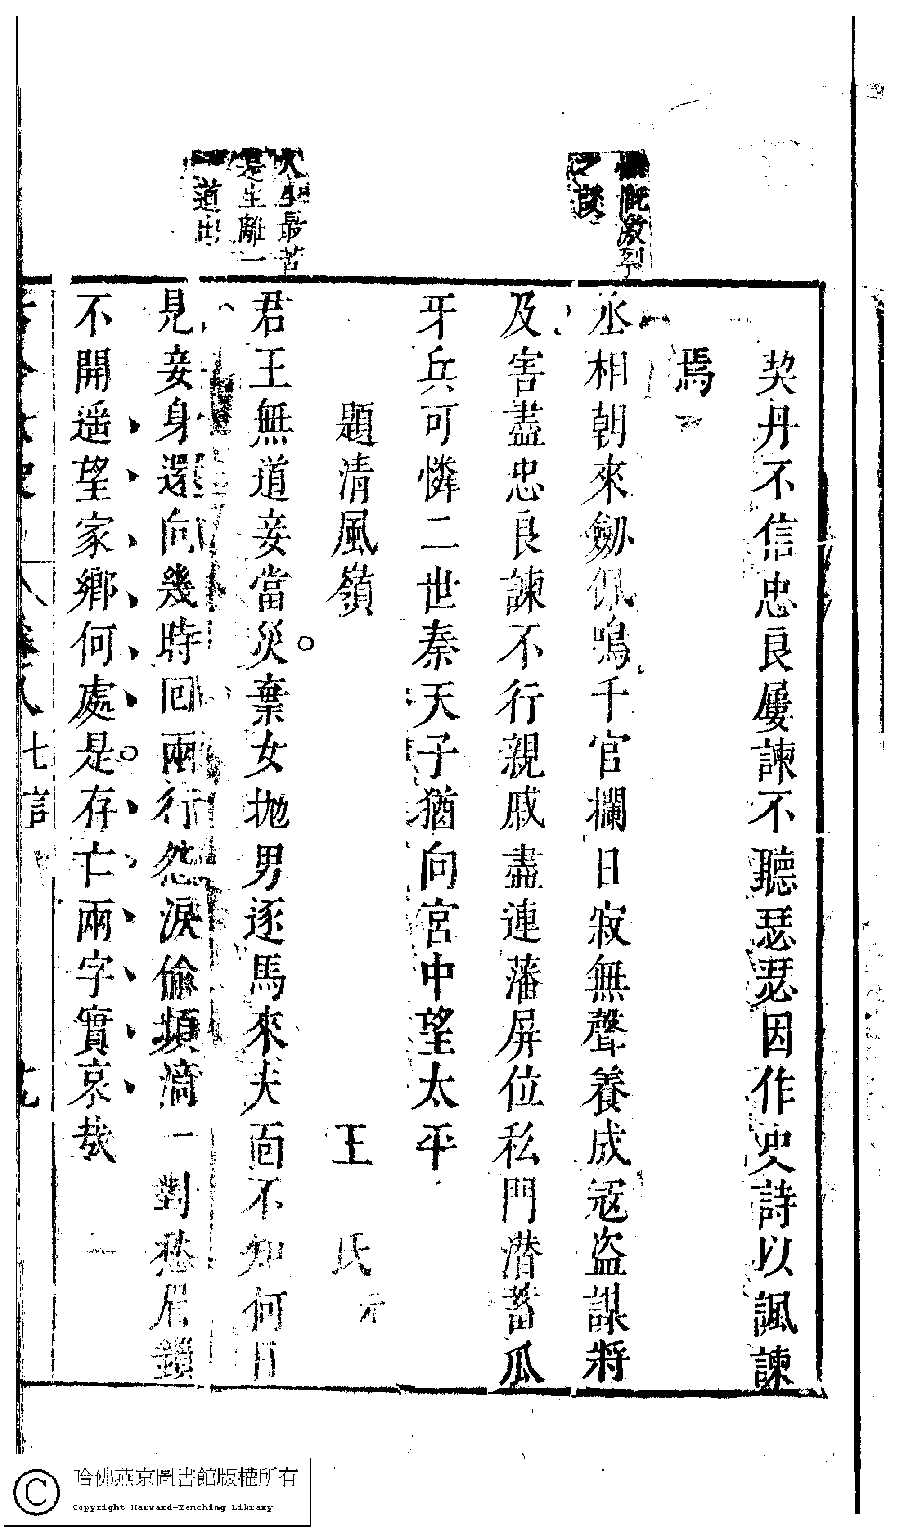 慨激烈
之談
契丹不信忠良屢諫不聽瑟瑟因作史詩以諷諫
焉
丞相朝來劒佩鳴千官欄目寂無聲養成寇盜謀將
及害盡忠良諫不行親戚盡連藩屏位私門潜蓄瓜
牙兵可憐二世秦天子猶向宮中望太平
人生最苦
是生離一
道出
題清風嶺
王氏
君王無道妾當災棄女抛男逐馬來夫面不知何日
見妾身還向幾時回兩行怨淚偷頻滴一對愁眉鎖
不開遥望家鄉何處是存亡兩字實哀哉
古今女史
卷八
七言
哈佛燕京圖書館版權所有
Copyright Harvard-Yenching Library